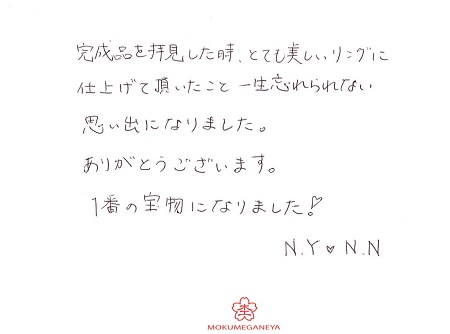 完成品を拝見した時、とても美しいリングに
仕上げて頂いたこと一生忘れられない
思い出になりました。
ありがとうございます。
1番の宝物になりました!
N.Y♥N.N
MOKUMEGANEYA